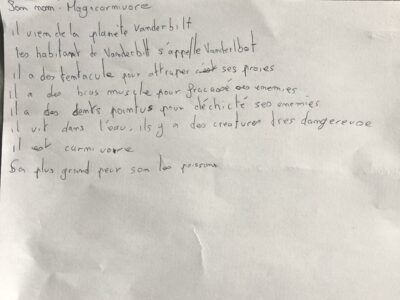 Son nom : Magicarnivore
il vien de la planète Vanderbilt
les habitant de Vanderbilt s'appelle Vanderlbot
il a des tentacule pour attraper ses proies
il a des bras muscle pour fracassé ses enemies
il a des dents pointus pour déchicté ses enemies
il vit dans l'eau, ils y a des creatures tres dangereuse
il est carnivore
Sa plus grand peur son les poissons